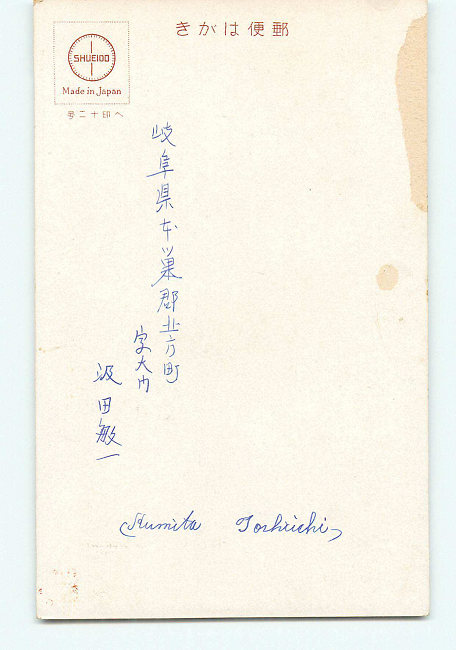 きがはﾠ便郵
SHUEIDO
Made in Japan
ヘ印十二号
岐阜県本巣郡北方町
字大内
汲田敏一
(Kumita Toshiichi)